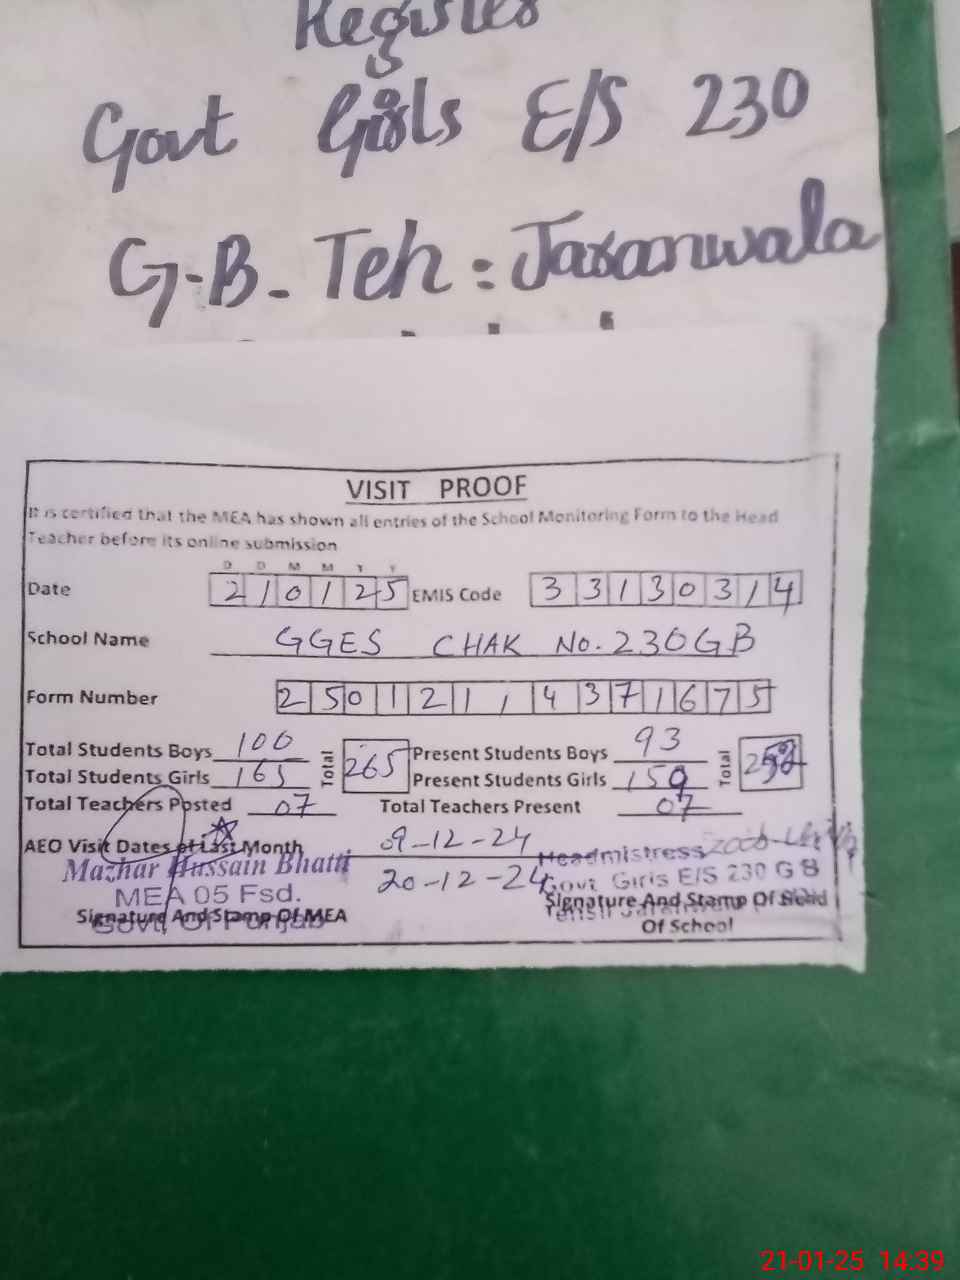 Register
Govt Girls E/S 230
G.B. Teh: Jaranwala
VISIT PROOF
It is certified that the MEA has shown all entries of the School Monitoring Form to the Head
Teacher before its online submission
D D M M Y Y
Date 210125 EMIS Code 33130314
School Name GGES CHAK No. 230GB
Form Number 25012114371675
Total Students Boys 100 Total 265 Present Students Boys 93 Total
Total Students Girls 165 Present Students Girls 159
Total Teachers Posted 07 Total Teachers Present 07
AEO Visit Dates of Last Month 09-12-24
20-12-24
Mazhar Hussain Bhatti
MEA 05 Fsd.
Govt, Of Punjab
Signature And Stamp Of MEA
Headmistress
Govt Girls E/S 230 G B
Tehsil Jaranwala
Signature And Stamp Of Head
Of School
21-01-25 14:39